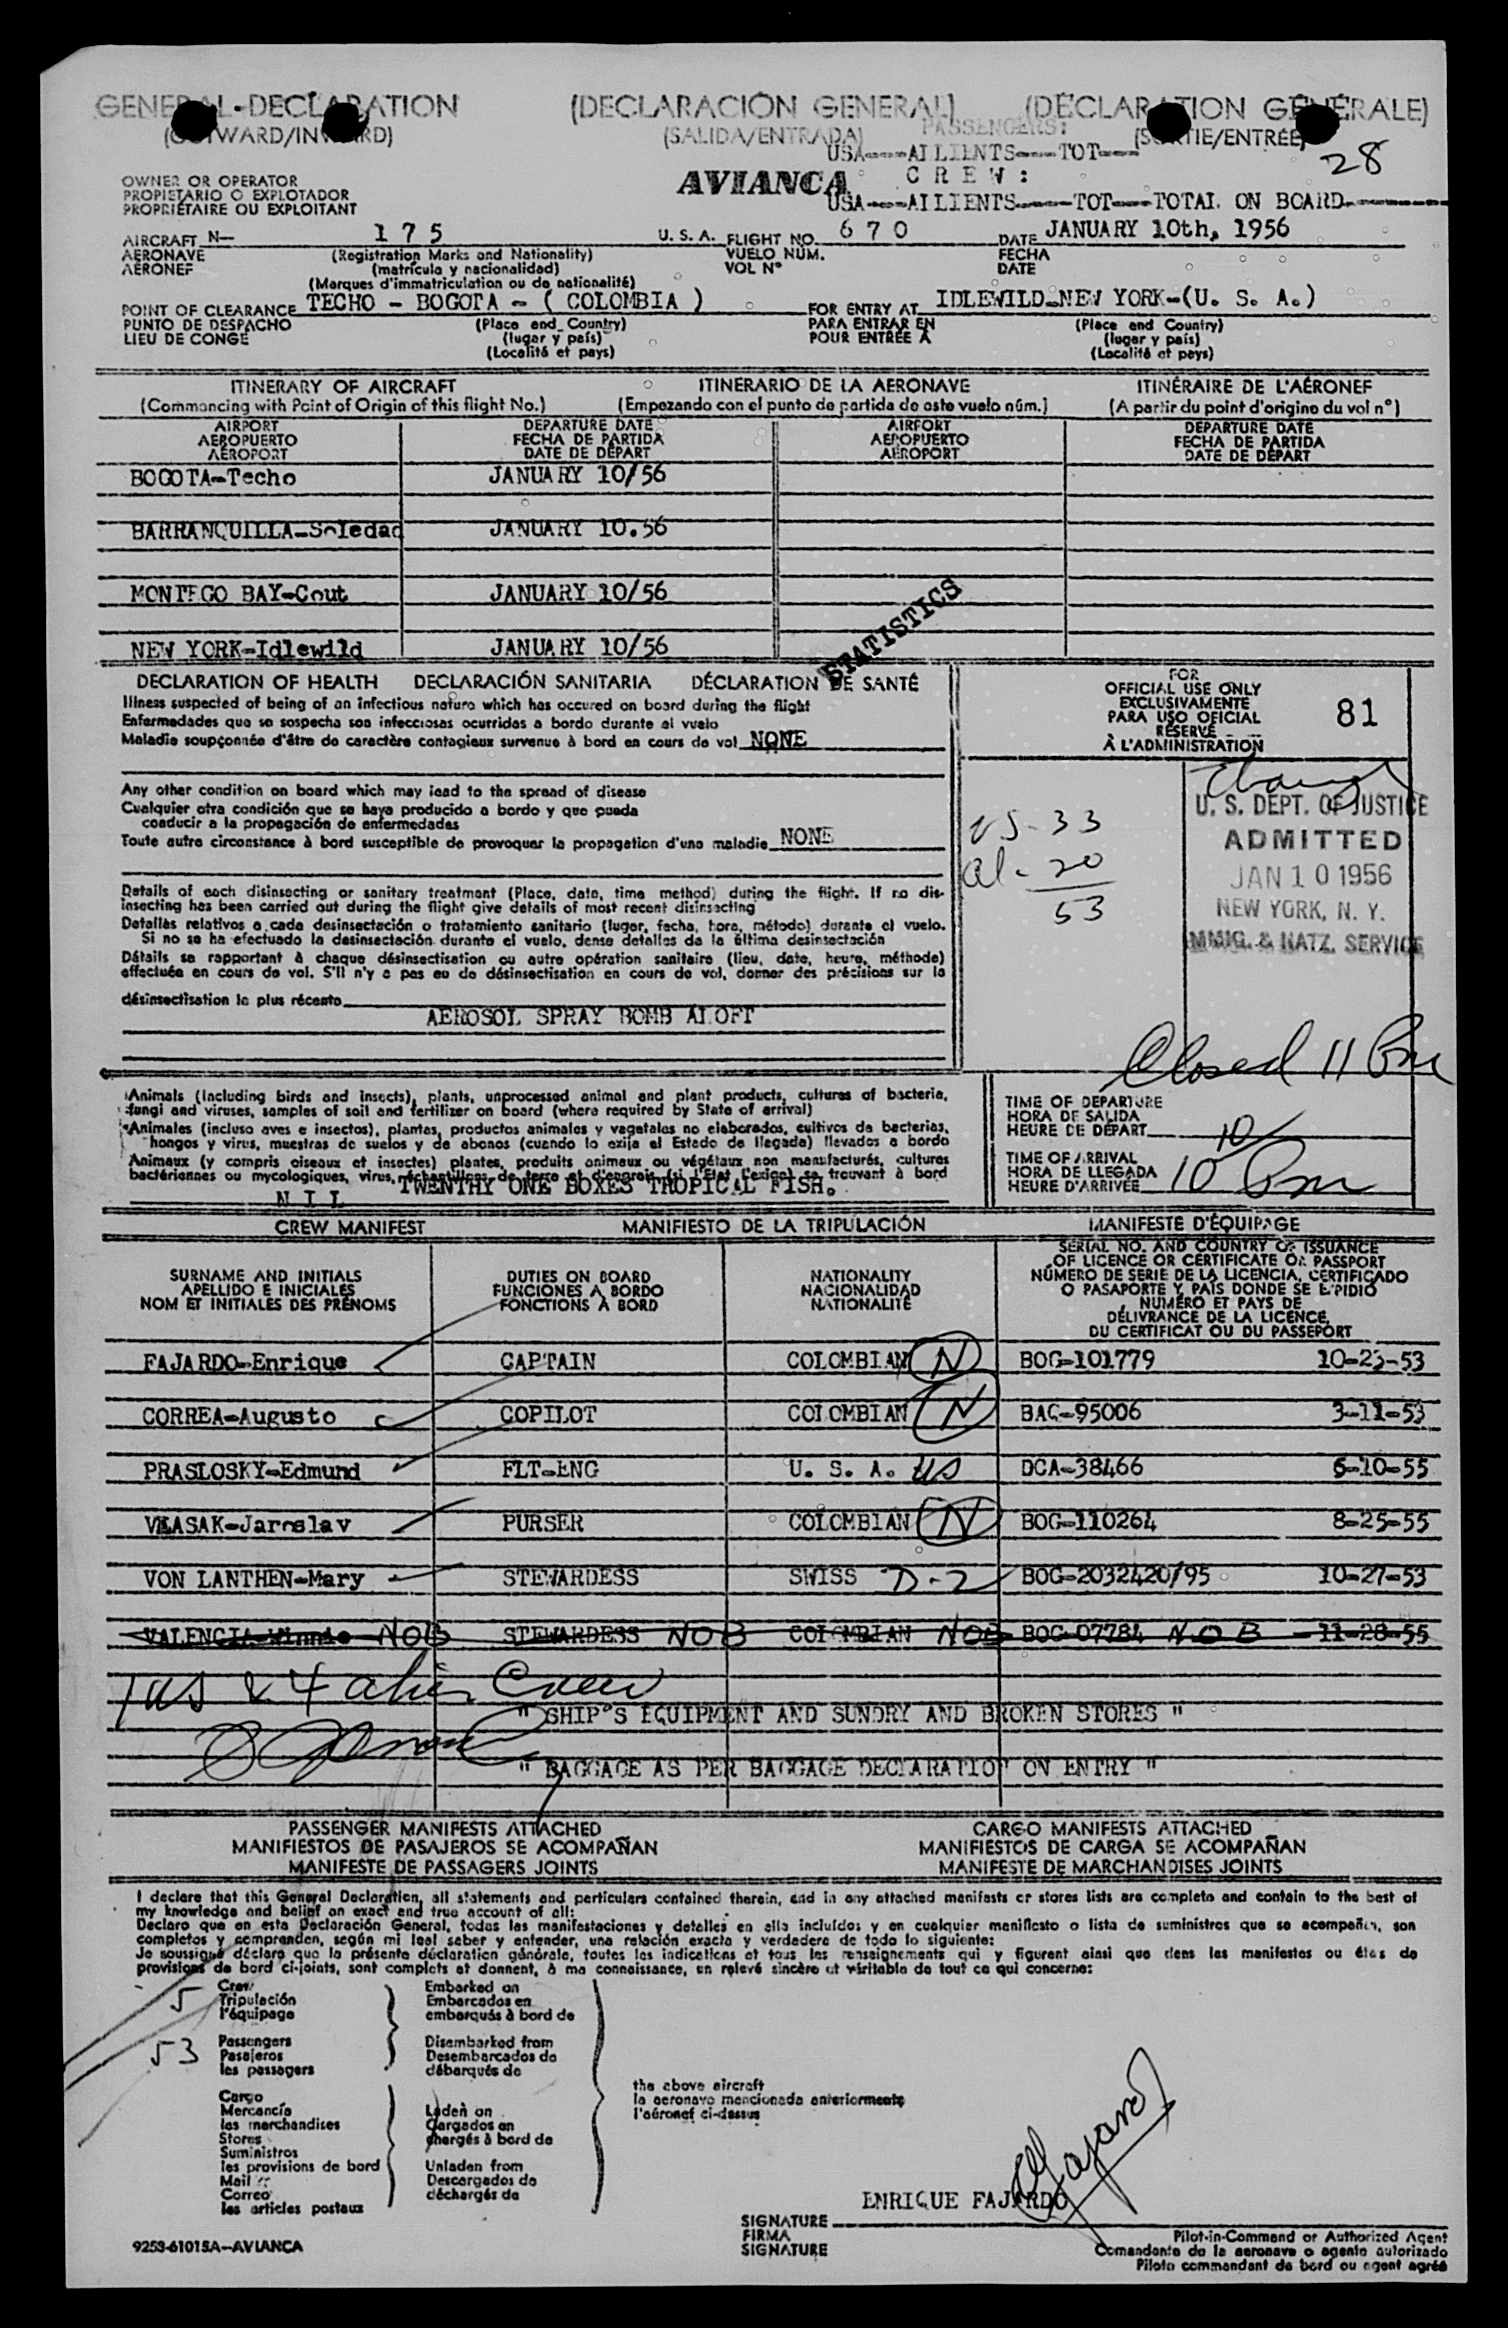 GENERAL-DECLARATION (DECLARACIÓN GENERAL) (DÉCLARATION GÉNÉRALE)
(OUTWARD/INWARD) (SALIDA/ENTRADA) (SORTIE/ENTRÉE)
PASSENGERS:
USA----AILIENTS----TOT----
28
C R E W :
AVIANCA
USA----AILIENTS-----TOT----TOTAL ON BOARD---------
OWNER OR OPERATOR
PROPIETARIO O EXPLOTADOR
PROPRIÉTAIRE OU EXPLOITANT
AIRCRAFT N— 175 U. S. A. FLIGHT NO. 670 DATE JANUARY 10th, 1956
AERONAVE (Registration Marks and Nationality) VUELO NÚM. FECHA
AÉRONEF (matrícula y nacionalidad) VOL N° DATE
(Marques d'immatriculation ou de nationalité)
POINT OF CLEARANCE TECHO - BOGOTA - ( COLOMBIA ) FOR ENTRY AT IDLEWILD-NEW YORK-(U. S. A.)
PUNTO DE DESPACHO (Place and Country) PARA ENTRAR EN (Place and Country)
LIEU DE CONGÉ (lugar y país) POUR ENTRÉE A (lugar y país)
(Localité et pays) (Localité et pays)
ITINERARY OF AIRCRAFT ITINERARIO DE LA AERONAVE ITINÉRAIRE DE L'AÉRONEF
(Commencing with Point of Origin of this flight No.) (Empezando con el punto de partida de este vuelo núm.) (A partir du point d'origine du vol n°)
AIRPORT DEPARTURE DATE AIRPORT DEPARTURE DATE
AEROPUERTO FECHA DE PARTIDA AEROPUERTO FECHA DE PARTIDA
AÉROPORT DATE DE DÉPART AÉROPORT DATE DE DÉPART
BOGOTA-Techo JANUARY 10/56
BARRANQUILLA-Soledad JANUARY 10.56
MONTEGO BAY-Cout JANUARY 10/56
NEW YORK-Idlewild JANUARY 10/56
STATISTICS
DECLARATION OF HEALTH DECLARACIÓN SANITARIA DÉCLARATION DE SANTÉ
Illness suspected of being of an infectious nature which has occured on board during the flight
Enfermedades que se sospecha son infecciosas ocurridas a bordo durante el vuelo
Maladie soupçonnée d'être de caractère contagieux survenue à bord en cours de vol NONE
Any other condition on board which may lead to the spread of disease
Cualquier otra condición que se haya producido a bordo y que pueda
conducir a la propagación de enfermedades
Toute autre circonstance à bord susceptible de provoquer la propagation d'une maladie NONE
Details of each disinsecting or sanitary treatment (Place, date, time method) during the flight. If no dis-
insecting has been carried out during the flight give details of most recent disinsecting
Detalles relativos a cada desinsectación o tratamiento sanitario (lugar, fecha, hora, método) durante el vuelo.
Si no se ha efectuado la desinsectación durante el vuelo, dense detalles de la última desinsectación
Détails se rapportant à chaque désinsectisation ou autre opération sanitaire (lieu, date, heure, méthode)
effectuée en cours de vol. S'il n'y a pas eu de désinsectisation en cours de vol, donner des précisions sur la
désinsectisation la plus récente
AEROSOL SPRAY BOMB ALOFT
FOR
OFFICIAL USE ONLY
EXCLUSIVAMENTE
PARA USO OFICIAL
RÉSERVÉ
À L'ADMINISTRATION
81
US-33
al-20
53
U. S. DEPT. OF JUSTICE
ADMITTED
JAN 10 1956
NEW YORK, N. Y.
IMMIG. & NATZ. SERVICE
Closed 11 Pm
Animals (including birds and insects), plants, unprocessed animal and plant products, cultures of bacteria,
fungi and viruses, samples of soil and fertilizer on board (where required by State of arrival)
Animales (incluso aves e insectos), plantas, productos animales y vegetales no elaborados, cultivos de bacterias,
hongos y virus, muestras de suelos y de abonos (cuando lo exija el Estado de llegada) llevados a bordo
Animaux (y compris oiseaux et insectes) plantes, produits animaux ou végétaux non manufacturés, cultures
bactériennes ou mycologiques, virus, échantillons de terre et d'engrais (si l'Etat l'exige) se trouvant à bord
N I L TWENTHY ONE BOXES TROPICAL FISH.
TIME OF DEPARTURE
HORA DE SALIDA
HEURE DE DÉPART
10/
TIME OF ARRIVAL
HORA DE LLEGADA
HEURE D'ARRIVÉE 10 Pm
CREW MANIFEST MANIFIESTO DE LA TRIPULACIÓN MANIFESTE D'ÉQUIPAGE
SURNAME AND INITIALS
APELLIDO E INICIALES
NOM ET INITIALES DES PRÉNOMS
DUTIES ON BOARD
FUNCIONES A BORDO
FONCTIONS À BORD
NATIONALITY
NACIONALIDAD
NATIONALITÉ
SERIAL NO. AND COUNTRY OF ISSUANCE
OF LICENCE OR CERTIFICATE OR PASSPORT
NÚMERO DE SERIE DE LA LICENCIA, CERTIFICADO
O PASAPORTE Y PAÍS DONDE SE EXPIDIÓ
NUMÉRO ET PAYS DE
DÉLIVRANCE DE LA LICENCE,
DU CERTIFICAT OU DU PASSEPORT
FAJARDO-Enrique CAPTAIN COLOMBIAN N BOG-101779 10-23-53
CORREA-Augusto COPILOT COLOMBIAN N BAC-95006 3-11-53
PRASLOSKY-Edmund FLT-ENG U. S. A. US DCA-38466 6-10-55
VLASAK-Jaroslav PURSER COLOMBIAN N BOG-110264 8-25-55
VON LANTHEN-Mary STEWARDESS SWISS D-2 BOG-2032420/95 10-27-53
VALENCIA-Winnie NOB STEWARDESS NOB COLOMBIAN NOB BOG-07784 N.O B -11-28-55
1 US & 4 alien Crew
" SHIP'S EQUIPMENT AND SUNDRY AND BROKEN STORES "
" BAGGAGE AS PER BAGGAGE DECLARATION ON ENTRY "
PASSENGER MANIFESTS ATTACHED CARGO MANIFESTS ATTACHED
MANIFIESTOS DE PASAJEROS SE ACOMPAÑAN MANIFIESTOS DE CARGA SE ACOMPAÑAN
MANIFESTE DE PASSAGERS JOINTS MANIFESTE DE MARCHANDISES JOINTS
I declare that this General Declaration, all statements and particulars contained therein, and in any attached manifests or stores lists are complete and contain to the best of
my knowledge and belief an exact and true account of all:
Declaro que en esta Declaración General, todas las manifestaciones y detalles en ella incluídos y en cualquier manifiesto o lista de suministros que se acompañen, son
completos y comprenden, según mi leal saber y entender, una relación exacta y verdadera de todo lo siguiente:
Je soussigné déclare que la présente déclaration générale, toutes les indications et tous les renseignements qui y figurent ainsi que dans les manifestes ou états de
provisions de bord ci-joints, sont complets et donnent, à ma connaissance, un relevé sincère et véritable de tout ce qui concerne:
5
Crew
Tripulación
l'équipage
53
Passengers
Pasajeros
les passagers
Cargo
Mercancía
les marchandises
Stores
Suministros
les provisions de bord
Mail
Correo
les articles postaux
Embarked on
Embarcados en
embarqués à bord de
Disembarked from
Desembarcados de
débarqués de
Laden on
Cargados en
chargés à bord de
Unladen from
Descargados de
déchargés de
the above aircraft
la aeronave mencionada anteriormente
l'aéronef ci-dessus
E Fajardo
ENRIQUE FAJARDO
SIGNATURE
FIRMA
SIGNATURE
Pilot-in-Command or Authorized Agent
Comandante de la aeronave o agente autorizado
Pilote commandant de bord ou agent agréé
9253-61015A—AVIANCA